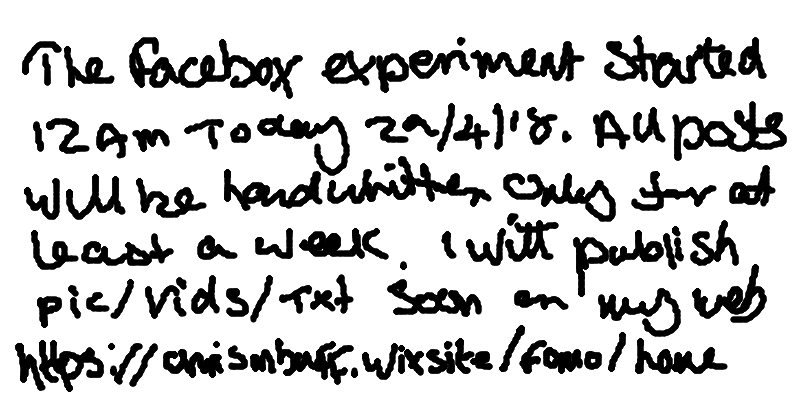 The Facebox experiment started
12Am Today 29/4/18. All posts
will be handwritten only for at
least a week. I will publish
pic/vids/Txt soon on my web
.wixsite/fomo/home